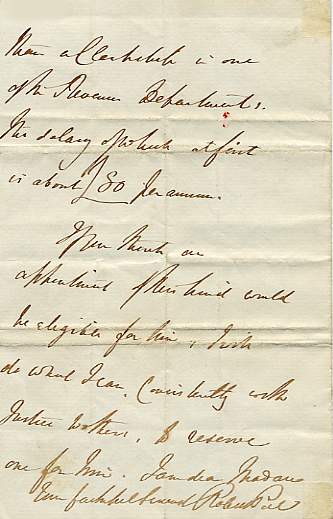 than a Clerkship in one
of the Revenue Departments.
The salary of which at first
is about £80 per annum.
If you think an
appointment of this kind would
be eligible for him, I will
do what I can, consistently with
Justice to others, to reserve
one for him. I am dear Madam
Your faithful Servant Robert Peel